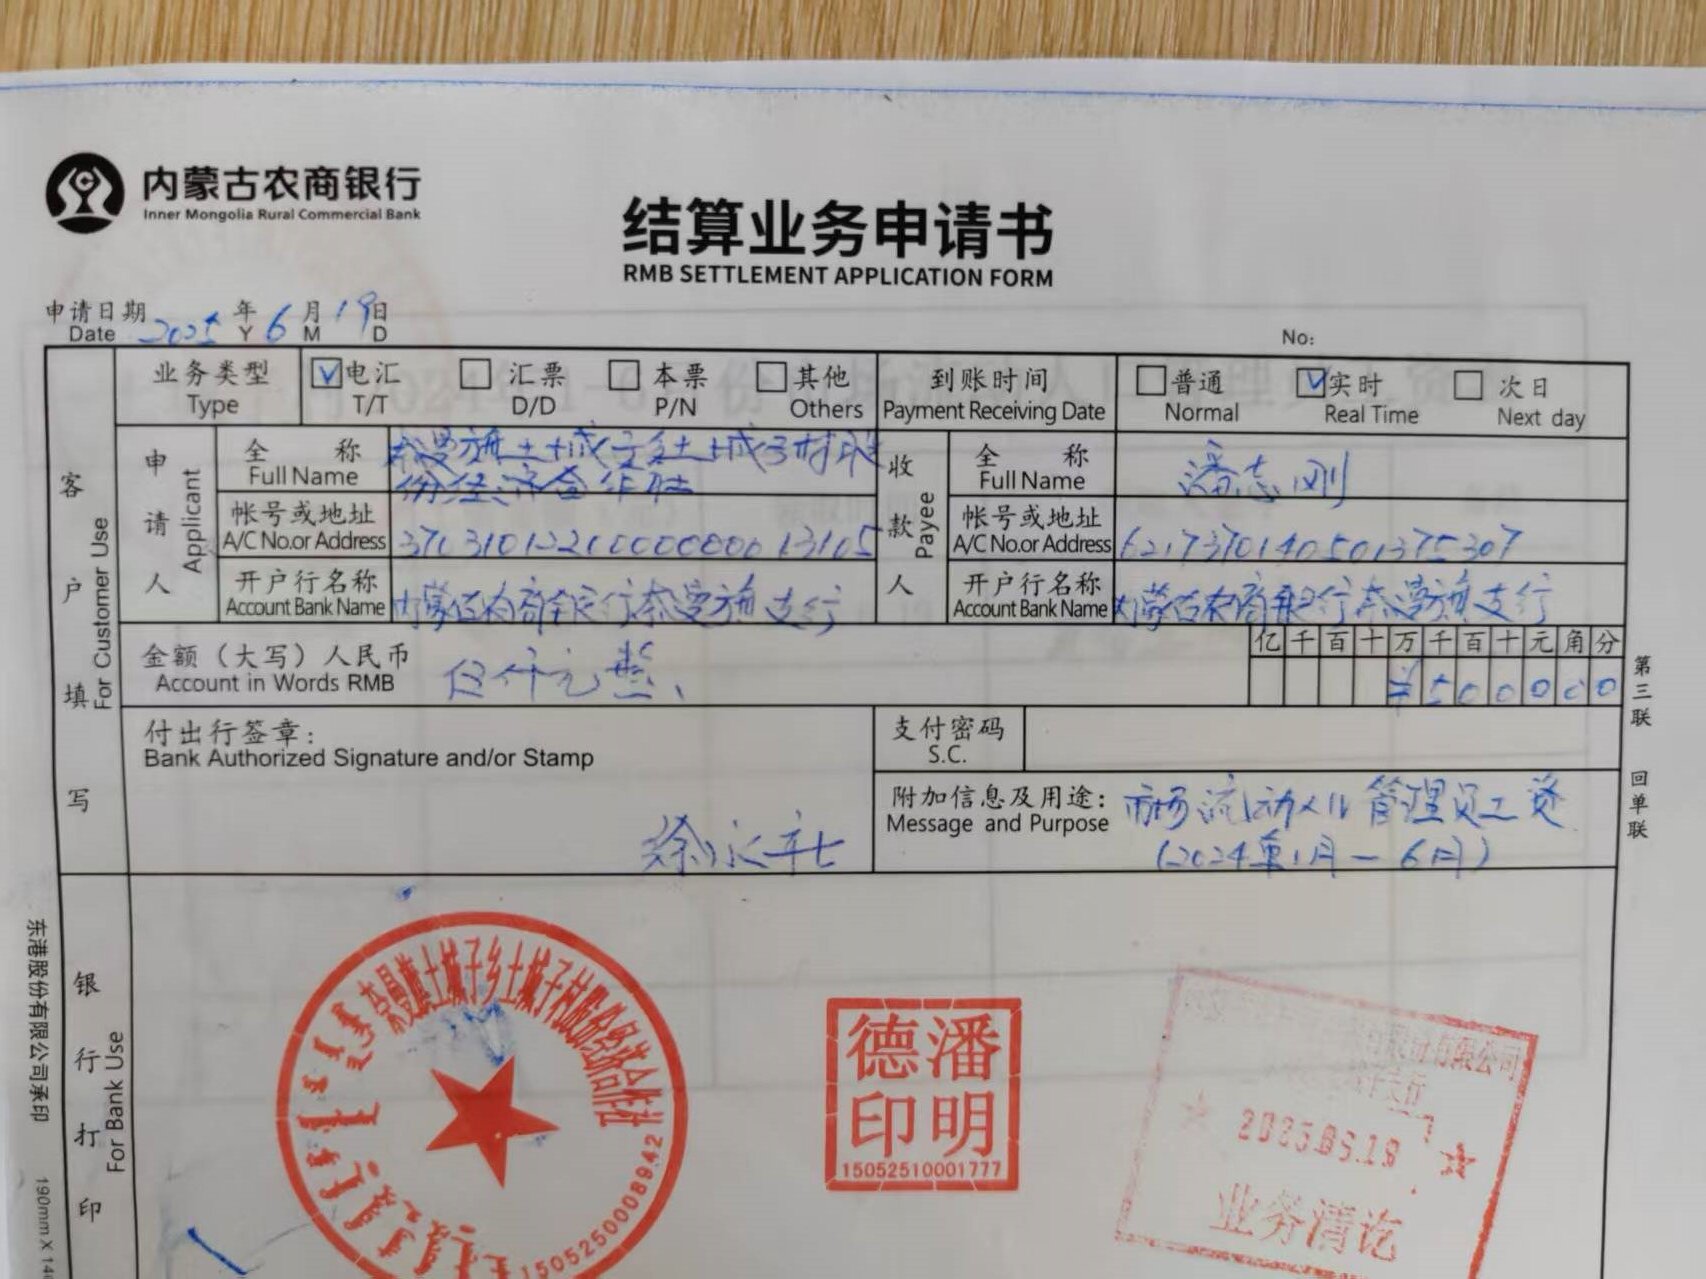 内蒙古农商银行
Inner Mongolia Rural Commercial Bank
结算业务申请书
RMB SETTLEMENT APPLICATION FORM
申请日期 2025 年 6 月 19 日
Date Y M D
No:
业务类型 电汇 汇票 本票 其他 到账时间 普通 实时 次日
Type T/T D/D P/N Others Payment Receiving Date Normal Real Time Next day
客户填写 For Customer Use
申请人 Applicant
全称 奈曼旗土城子乡土城子村股
Full Name 份经济合作社
帐号或地址
A/C No.or Address
开户行名称
Account Bank Name 内蒙古农商银行奈曼旗支行
收款人 Payee
全称
Full Name 潘志刚
帐号或地址
A/C No.or Address 6217370140501375307
开户行名称
Account Bank Name 内蒙古农商银行奈曼旗支行
金额（大写）人民币
Account in Words RMB 伍仟元整
亿千百十万千百十元角分
¥500000
付出行签章：
Bank Authorized Signature and/or Stamp
支付密码
S.C.
附加信息及用途： 市场流动人口管理员工资
Message and Purpose (2024年1月-6月)
第三联 回单联
银行打印 For Bank Use
东港股份有限公司承印 190mm X 14
奈曼旗土城子乡土城子村股份经济合作社
1505250008942
德潘
印明
15052510001777
有限公司
支行
2025.06.19
业务清讫